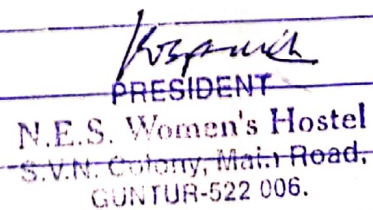 PRESIDENT
N.E.S. Women's Hostel
S.V.N. Colony, Main Road,
GUNTUR-522 006.